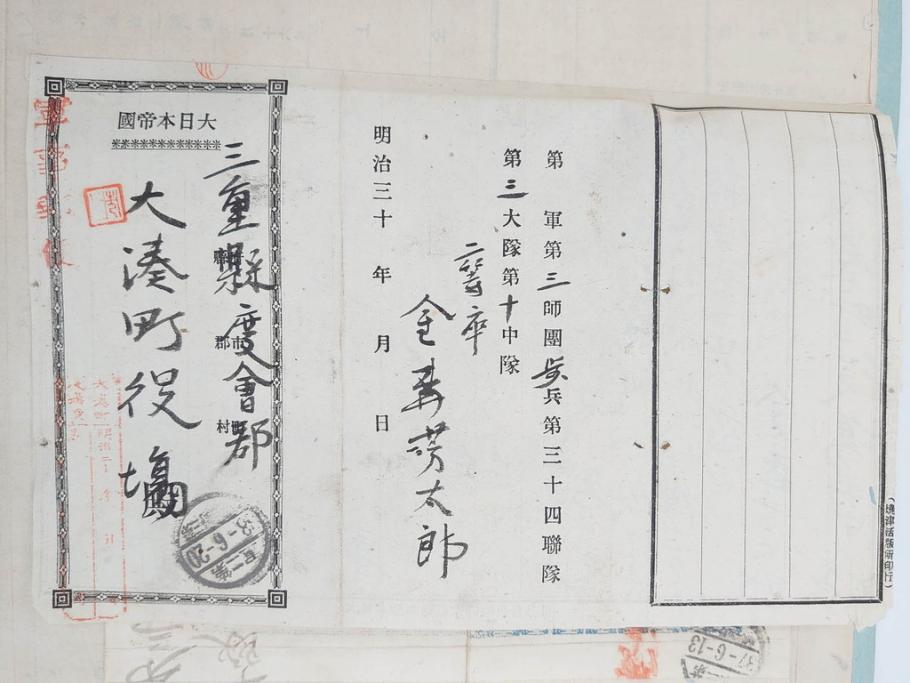 (燒津活版所印行)
第 軍第三師團歩兵第三十四聯隊
第三大隊第十中隊
二等卒
太郎
明治三十 年 月 日
大日本帝國
三重縣度會郡
大湊町役場
軍事郵便
6-20
37-6-13